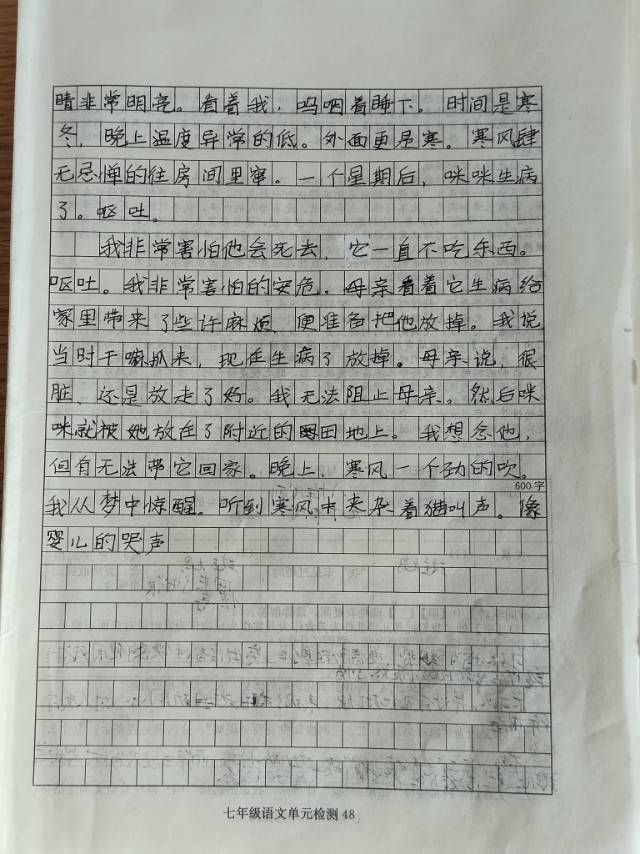 睛非常明亮。看着我，呜咽着睡下。时间是寒
冬，晚上温度异常的低。外面更是寒。寒风肆
无忌惮的往房间里窜。一个星期后，咪咪生病
了。呕吐。
我非常害怕他会死去，它一直不吃东西。
呕吐。我非常害怕的安危，母亲看着它生病给
家里带来了些许麻烦，便准备把他放掉。我说
当时干嘛抓来，现在生病了放掉。母亲说，很
脏，还是放走了好。我无法阻止母亲。然后咪
咪就被她放在了附近的田地上。我想念他，
但有无法带它回家。晚上，寒风一个劲的吹。
600字
我从梦中惊醒。听到寒风中夹杂着猫叫声。像
婴儿的哭声
七年级语文单元检测 48